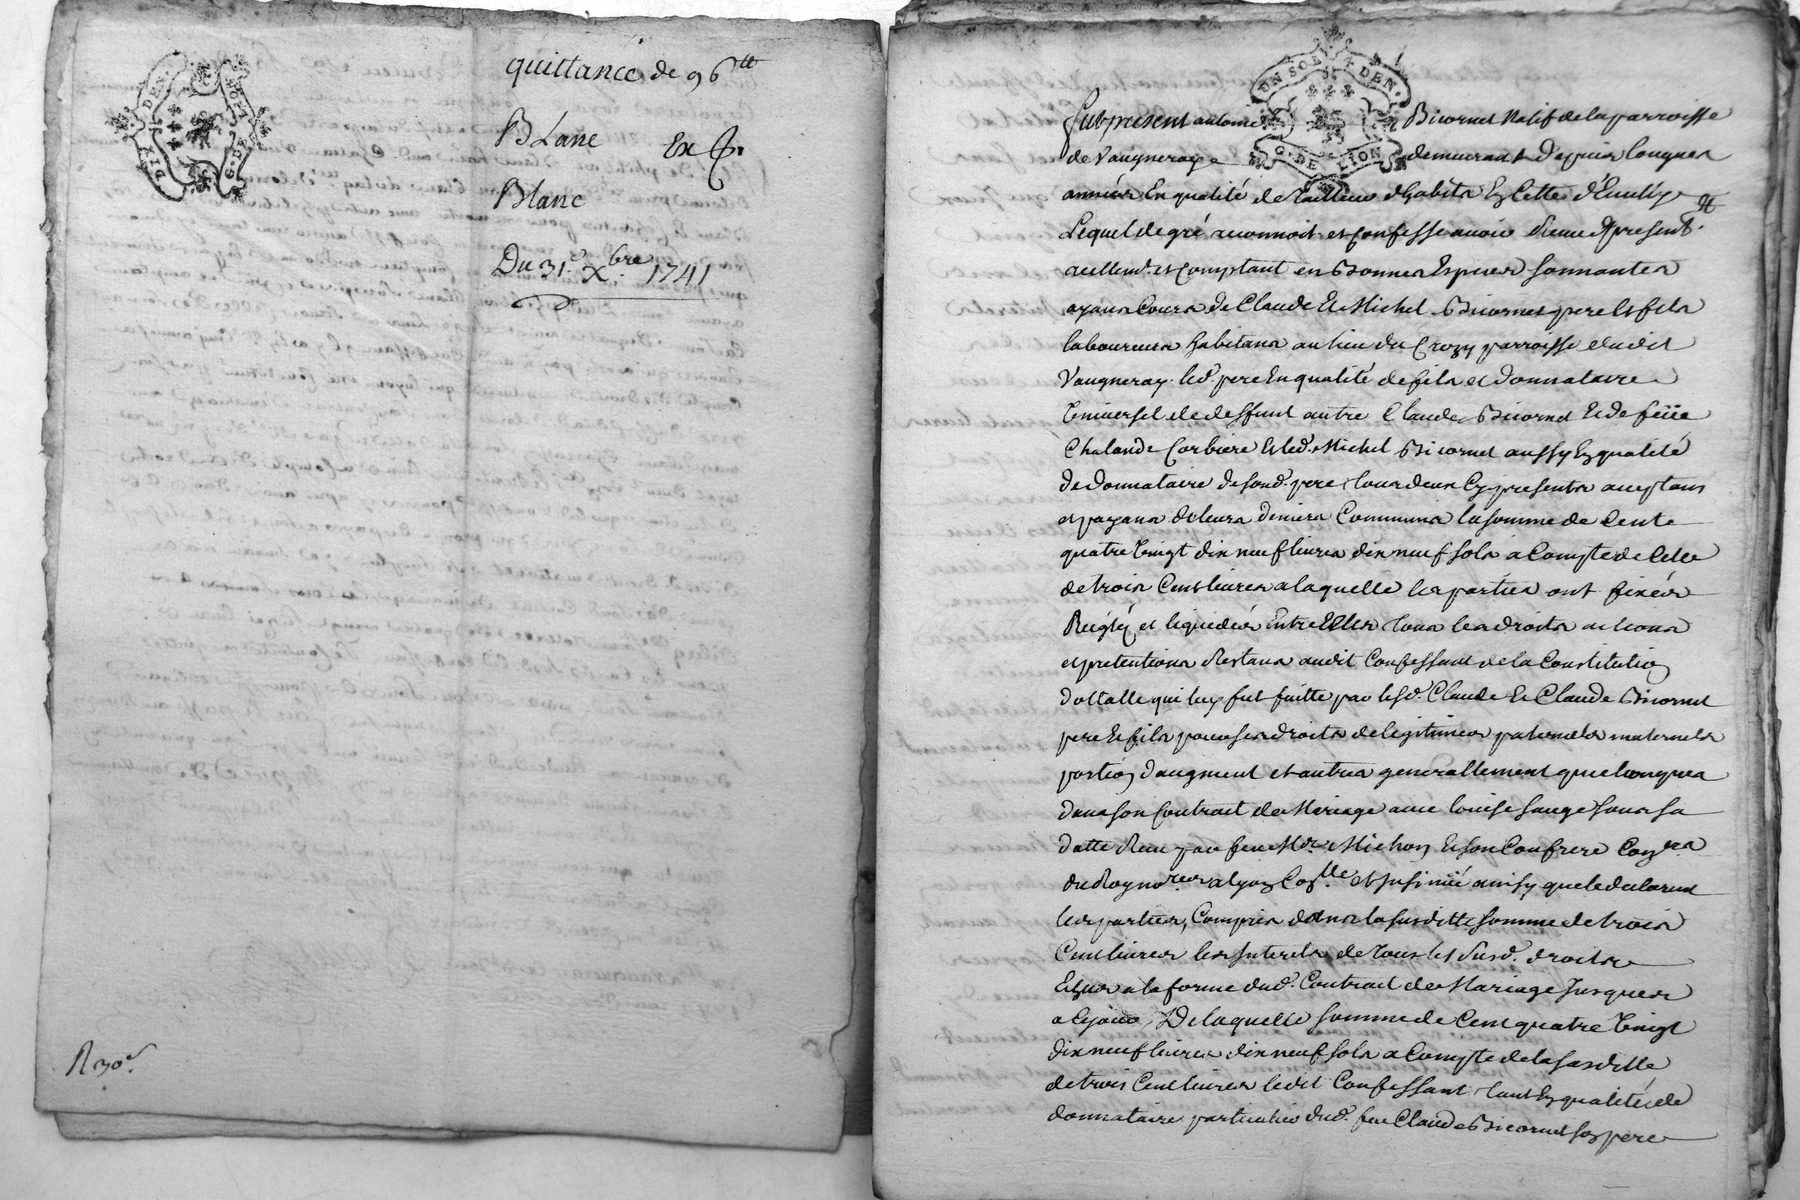 DIX DEN. G. DE LION
quittance de 96ᵗᵗ
BLanc Ex
Blanc
Du 31.ᵉ Xbre. 1741
R 30ˢ.
UN SOL 4 DEN. G. DE LION
fut present antoine Bicornet Natif de la parroisse
de Vaugneray demeurant depuis longues
années En qualité de Tailleur d'habits
Lequel de gré reconnoit et Confesse avoir Receu a present
reellemt. et Comptant en Bonnes Especes sonnantes
ayans Cours de Claude Et Michel Bicornet pere Et fils
laboureurs habitans au lieu du Crozy parroisse dudit
Vaugneray. led. pere En qualité de fils et donnataire
Universel de deffunt autre Claude Bicornet Et de feüe
Chalande Corbiere Et led. Michel Bicornet aussy En qualité
de donnataire de sond. pere tous deux Cy presents acceptans
et payans de leurs deniers Communs la somme de Cent
quatre Vingt dix neuf livres dix neuf sols a Compte de Celle
de trois Cent livres a laquelle les parties ont fixées
Reiglé et liquidées Entre Elles tous les droits actions
et pretentions Restans audit Confessant de la Constitution
dottalle qui luy fut faitte par lesd. Claude Et Claude Bicornet
pere Et fils pour ses droits de legitimes paternels maternels
portion daugment et autres generallement quelconques
dans son Contrait de Mariage avec louise sous sa
datte Receu par feu Mr. Michon Et son Confrere Coners
du Roy nores a lyon Conlle et Insinüé ainsy que le declarent
les parties, Compris dans la susditte somme de trois
Cent livres les Interets de tous les susd. droits
Echus a la forme dud. Contrait de Mariage Jusques
a Cejour, De laquelle somme de Cent quatre Vingt
dix neuf livres dix neuf sols a Compte de la susditte
de trois Cent livres ledit Confessant tant En qualité de
donnataire particulier dud. feu Claude Bicornet son pere